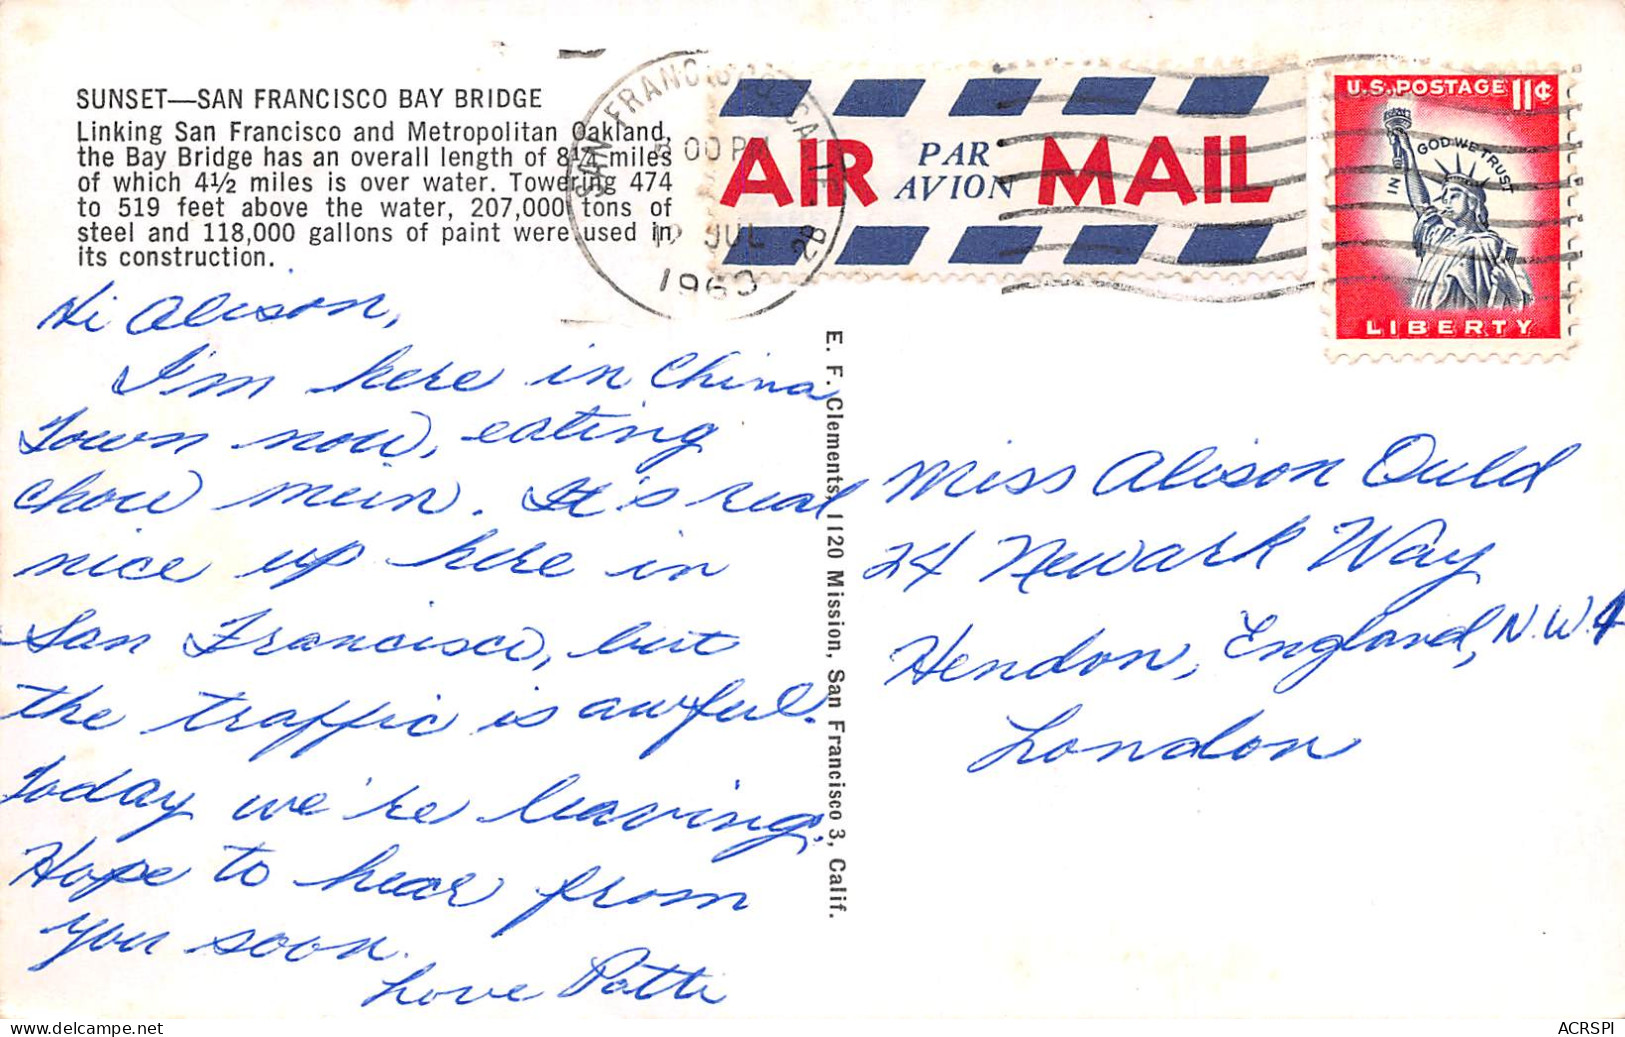 SUNSET—SAN FRANCISCO BAY BRIDGE
Linking San Francisco and Metropolitan Oakland,
the Bay Bridge has an overall length of 8¼ miles
of which 4½ miles is over water. Towering 474
to 519 feet above the water, 207,000 tons of
steel and 118,000 gallons of paint were used in
its construction.
SAN FRANCISCO, CALIF.
00 PM
JUL
1963
2B
AIR PAR AVION MAIL
U.S. POSTAGE 11¢
IN GOD WE TRUST
LIBERTY
Hi Alison,
I'm here in China
Town now, eating
chow mein. It's real
nice up here in
San Francisco, but
the traffic is awful.
Today we're leaving,
Hope to hear from
you soon.
Love Patti
E. F. Clements, 1120 Mission, San Francisco 3, Calif.
Miss Alison Ould
24 Newark Way
Hendon, England, N.W.4
London
delcampe.net
ACRSPI